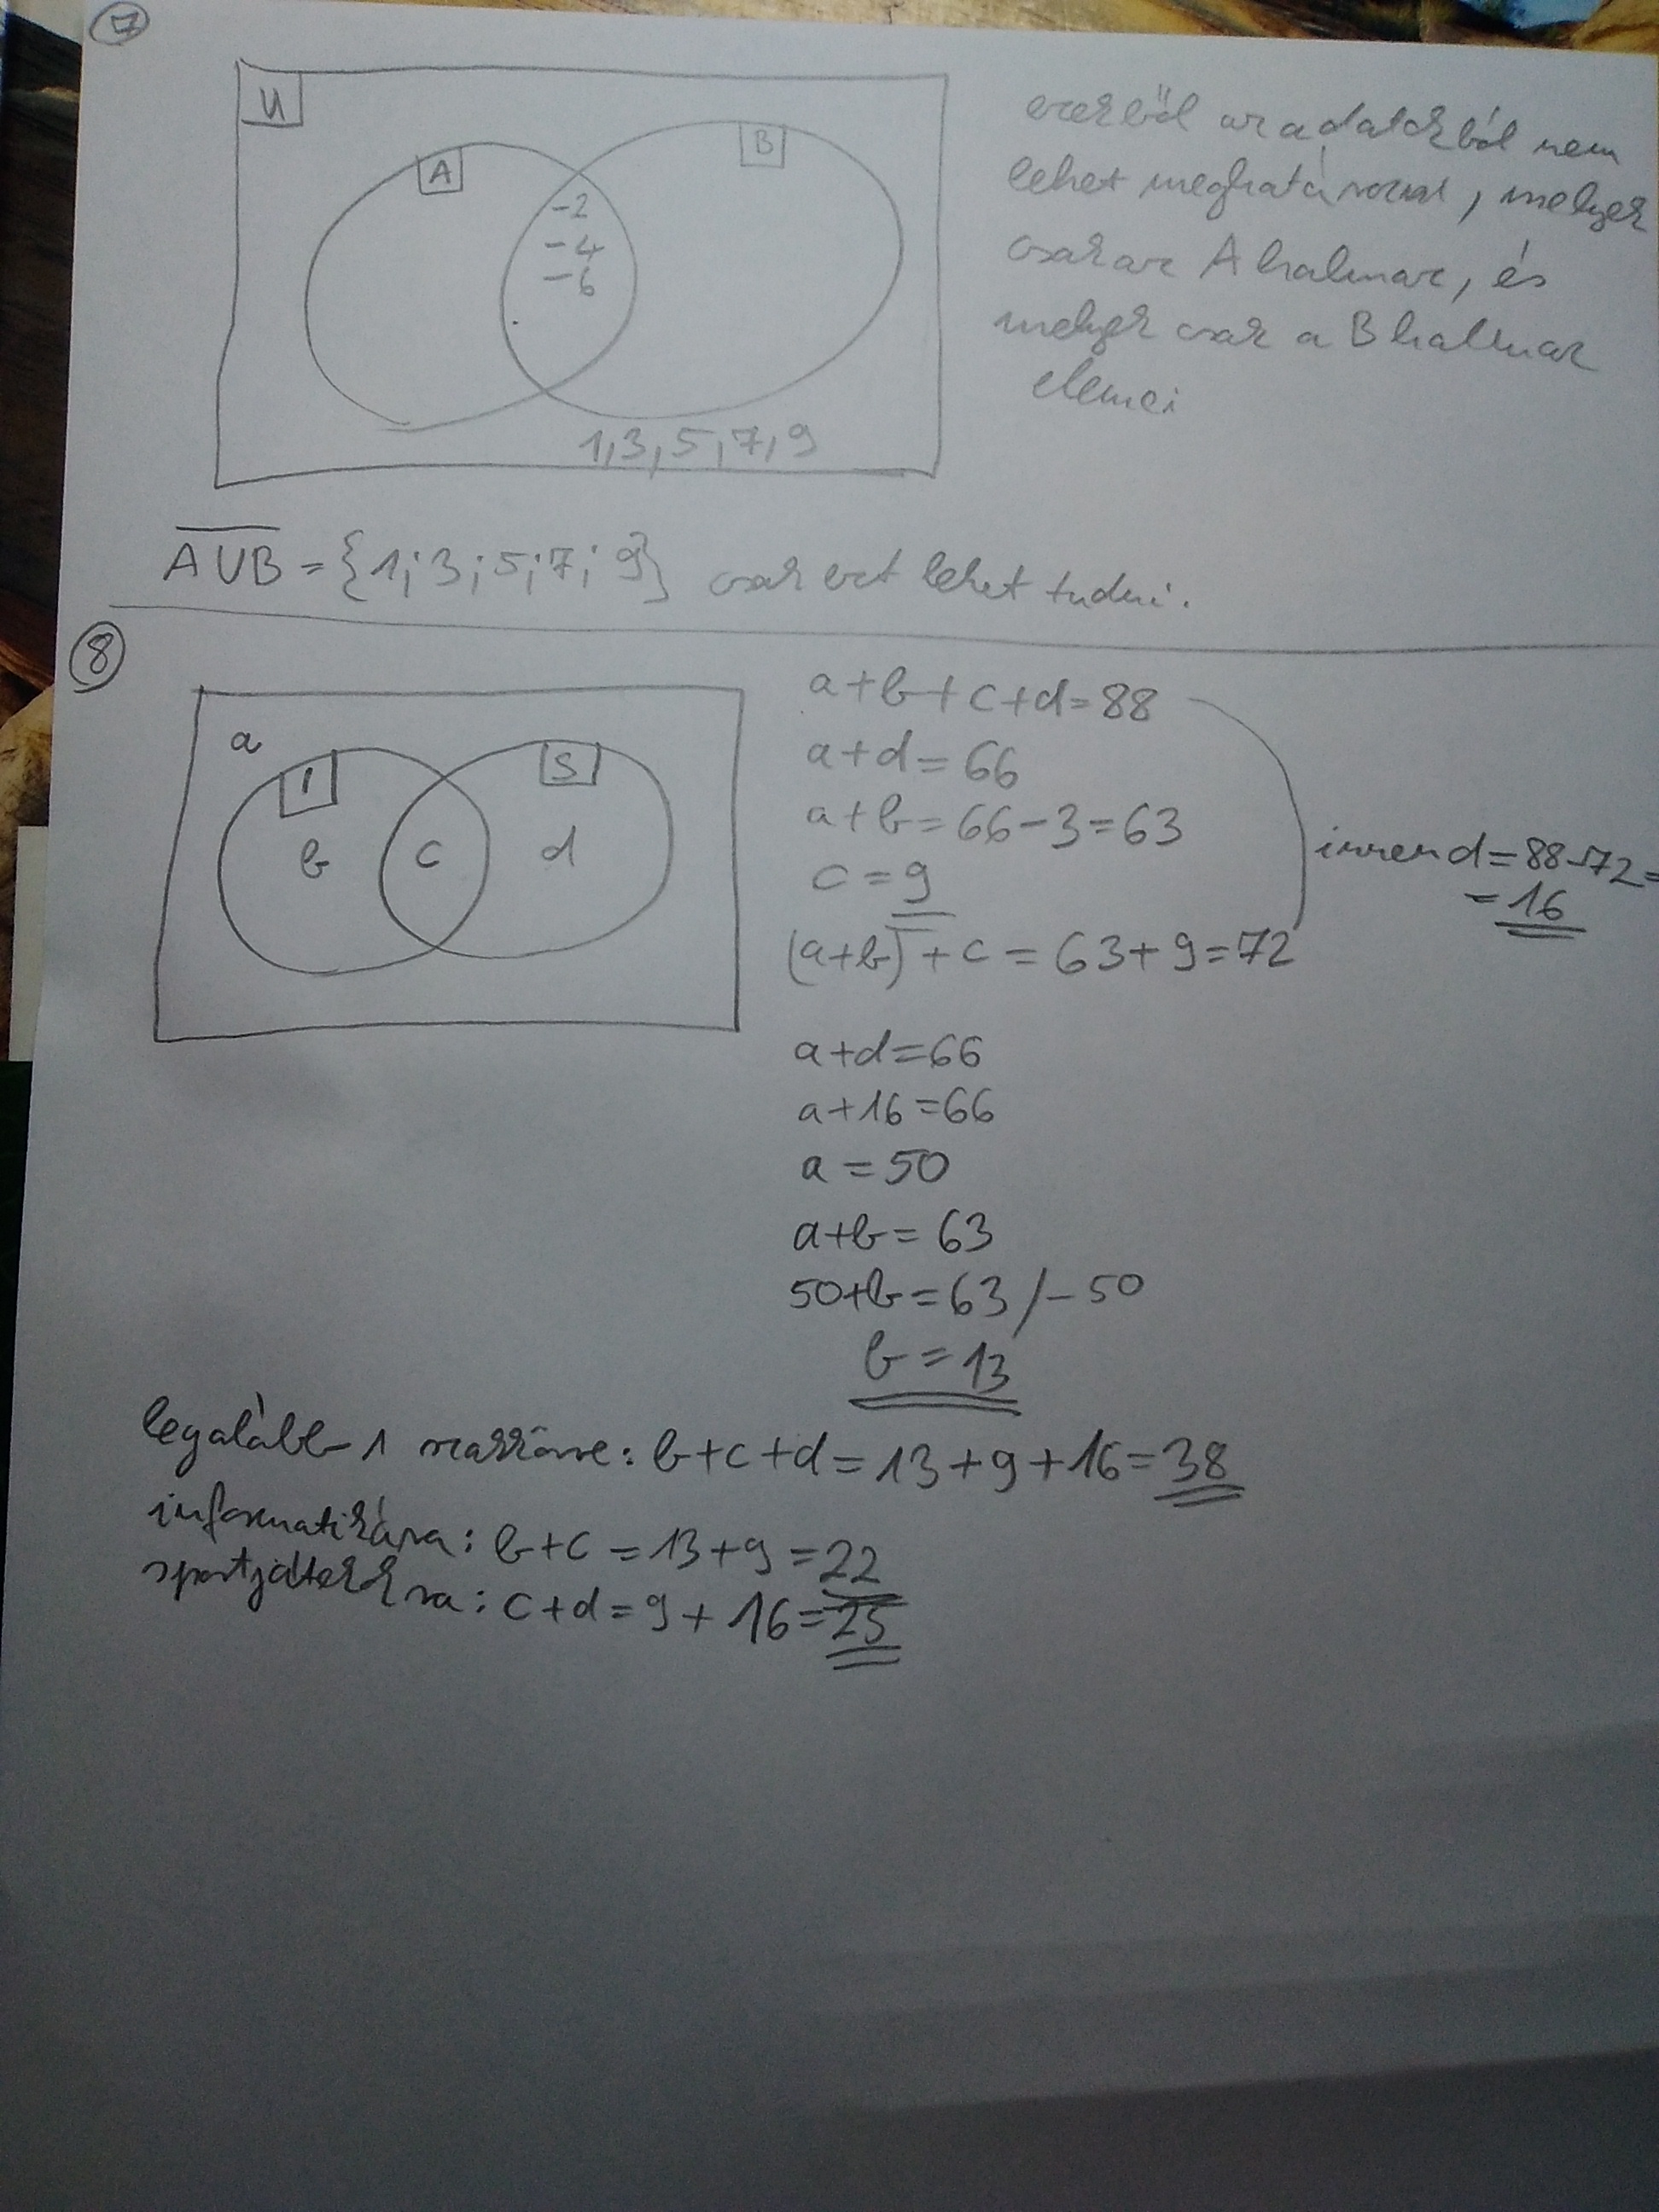 7
U
A
B
-2
-4
-6
1,3,5,7,9
ezekből az adatokból nem
lehet meghatározni, melyek
csak az A halmaz, és
melyek csak a B halmaz
elemei
A∪B = {1;3;5;7;9} csak ezt lehet tudni.
8
a
I
S
b
c
d
a+b+c+d=88
a+d=66
a+b=66-3=63
c=9
(a+b)+c=63+9=72
innen d=88-72=
=16
a+d=66
a+16=66
a=50
a+b=63
50+b=63/-50
b=13
legalább 1 szakkörre: b+c+d=13+9+16=38
informatikára: b+c=13+9=22
sportjátékra: c+d=9+16=25